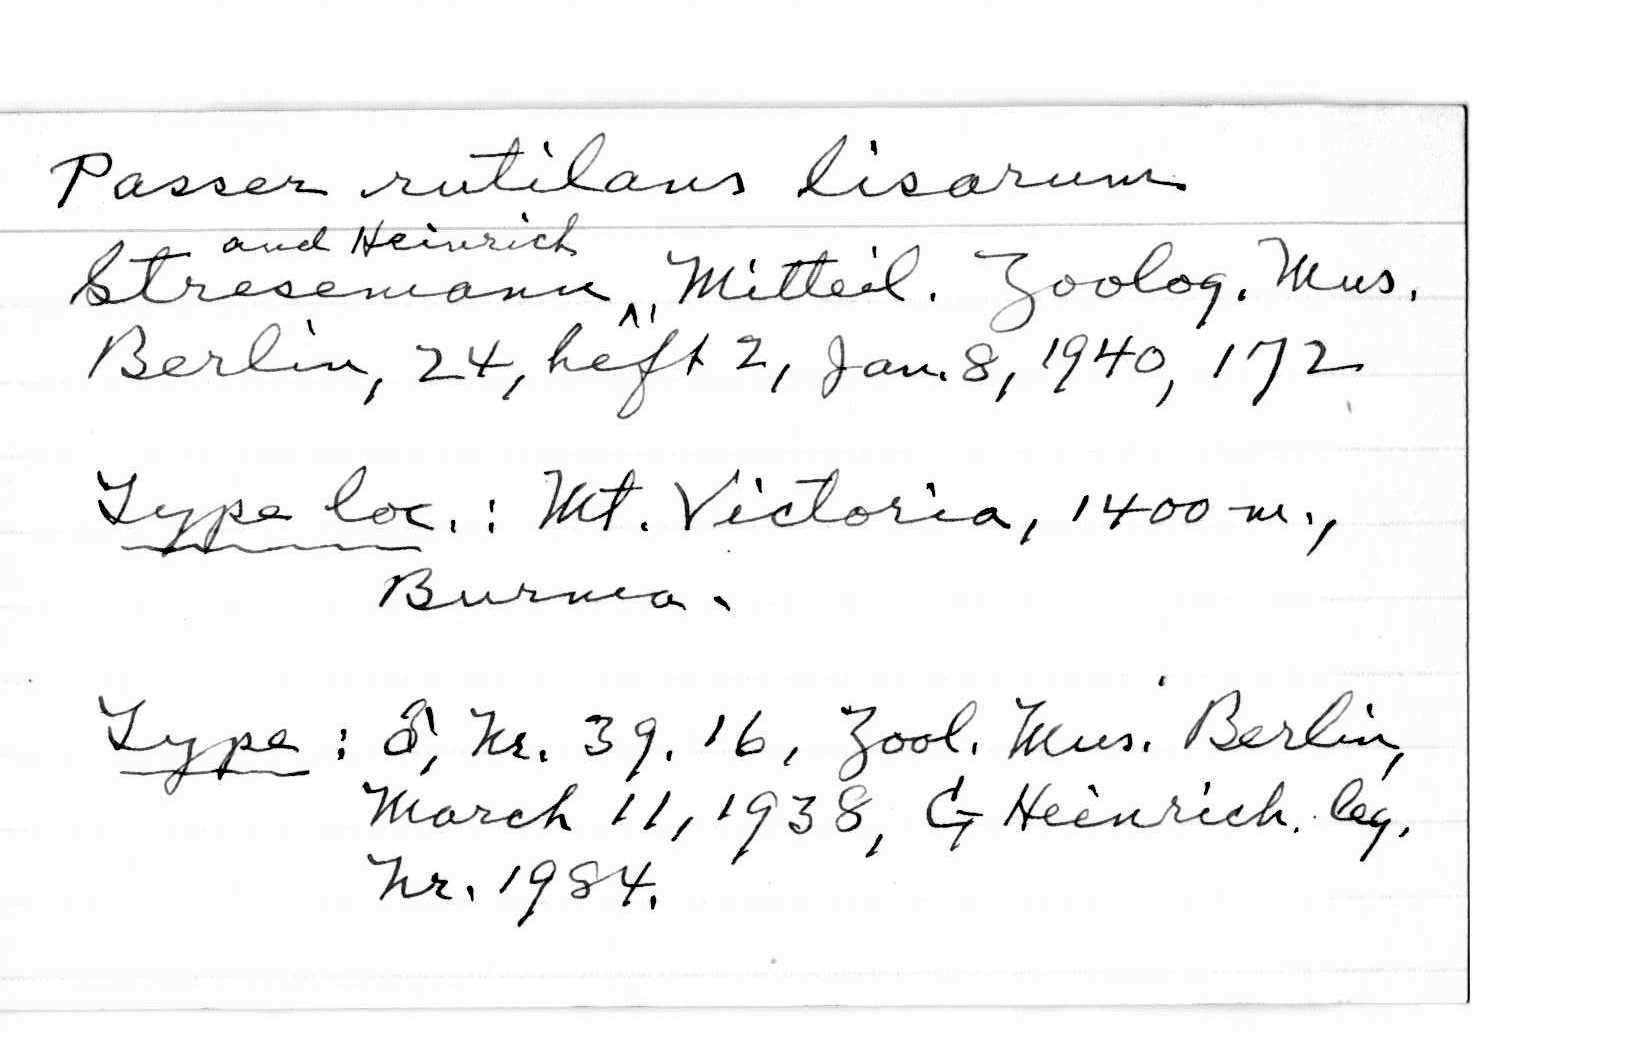 Passer rutilans lisarum
Stresemann and Heinrich, Mitteil. Zoolog. Mus.
Berlin, 24, heft 2, Jan. 8, 1940, 172
Type loc. : Mt. Victoria, 1400 m.,
Burma.
Type : ♂, Nr. 39.16, Zool. Mus. Berlin,
March 11, 1938, G Heinrich. leg.
Nr. 1984.